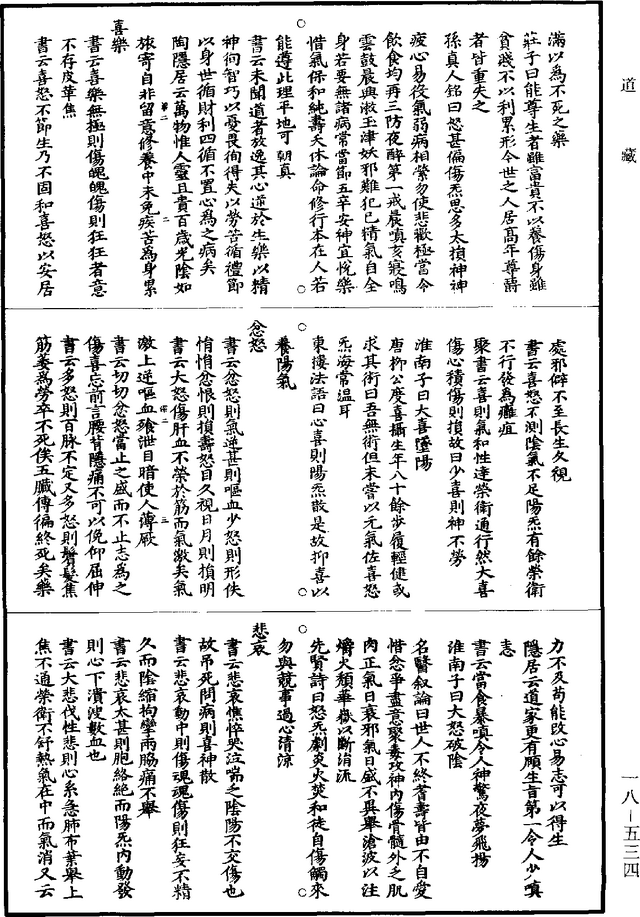 道藏
滿以為不死之藥
莊子曰能尊生者雖富貴不以養傷身雖
貧賤不以利累形今世之人居高年尊爵
者皆重失之
孫真人銘曰怒甚偏傷炁思多太損神神
疲心易役氣弱病相縈勿使悲歡極當令
飲食均再三防夜醉第一戒晨嗔亥寢鳴
雲鼓晨興漱玉津妖邪難犯己精氣自全
身若要無諸病常當節五辛安神宜悅樂
惜氣保和純壽夭休論命修行本在人若
能遵此理平地可朝真
書云未聞道者放逸其心逆於生樂以精
神徇智巧以憂畏徇得失以勞苦循禮節
以身世循財利四循不置心為之病矣
陶隱居云萬物惟人靈且貴百歲光陰如
旅寄自非留意修養中未免疾苦為身累
喜樂
書云喜樂無極則傷魄魄傷則狂狂者意
不存皮革焦
書云喜怒不節生乃不固和喜怒以安居
處邪僻不至長生久視
書云喜怒不測陰氣不足陽炁有餘榮衛
不行發為癰疽
聚書云喜則氣和性達榮衛通行然大喜
傷心積傷則損故曰少喜則神不勞
淮南子曰大喜墜陽
唐柳公度喜攝生年八十餘步履輕健或
求其術曰吾無術但未嘗以元氣佐喜怒
炁海常溫耳
東摟法語曰心喜則陽炁散是故抑喜以
養陽氣
忿怒
書云忿怒則氣逆甚則嘔血少怒則形佚
悄悄忿恨則損壽怒目久視日月則損明
書云大怒傷肝血不榮於筋而氣激矣氣
激上逆嘔血飧泄目暗使人薄厥
書云切切忿怒當止之盛而不止志為之
傷喜忘前言腰背隱痛不可以俛仰屈伸
書云多怒則百脉不定又多怒則鬢髮焦
筋萎為勞卒不死俟五臟傳徧終死矣藥
力不及苟能改心易志可以得生
隱居云道家更有頤生旨第一令人少嗔
恚
書云當食暴嗔令人神驚夜夢飛揚
淮南子曰大怒破陰
名醫叙論曰世人不終耆壽皆由不自愛
惜忿爭盡意聚毒攻神內傷骨髓外乏肌
肉正氣日衰邪氣日盛不異舉滄波以注
爝火頹華嶽以斷涓流
先賢詩曰怒炁劇炎火焚和徒自傷觸來
勿與競事過心清涼
悲哀
書云悲哀憔悴哭泣喘乏陰陽不交傷也
故吊死問病則喜神散
書云悲哀動中則傷魂魂傷則狂妄不精
久而陰縮拘攣兩脇痛不舉
書云悲哀太甚則胞絡絶而陽炁內動發
則心下潰溲數血也
書云大悲伐性悲則心系急肺布葉舉上
焦不通榮衛不舒熱氣在中而氣消又云
一八-五三四